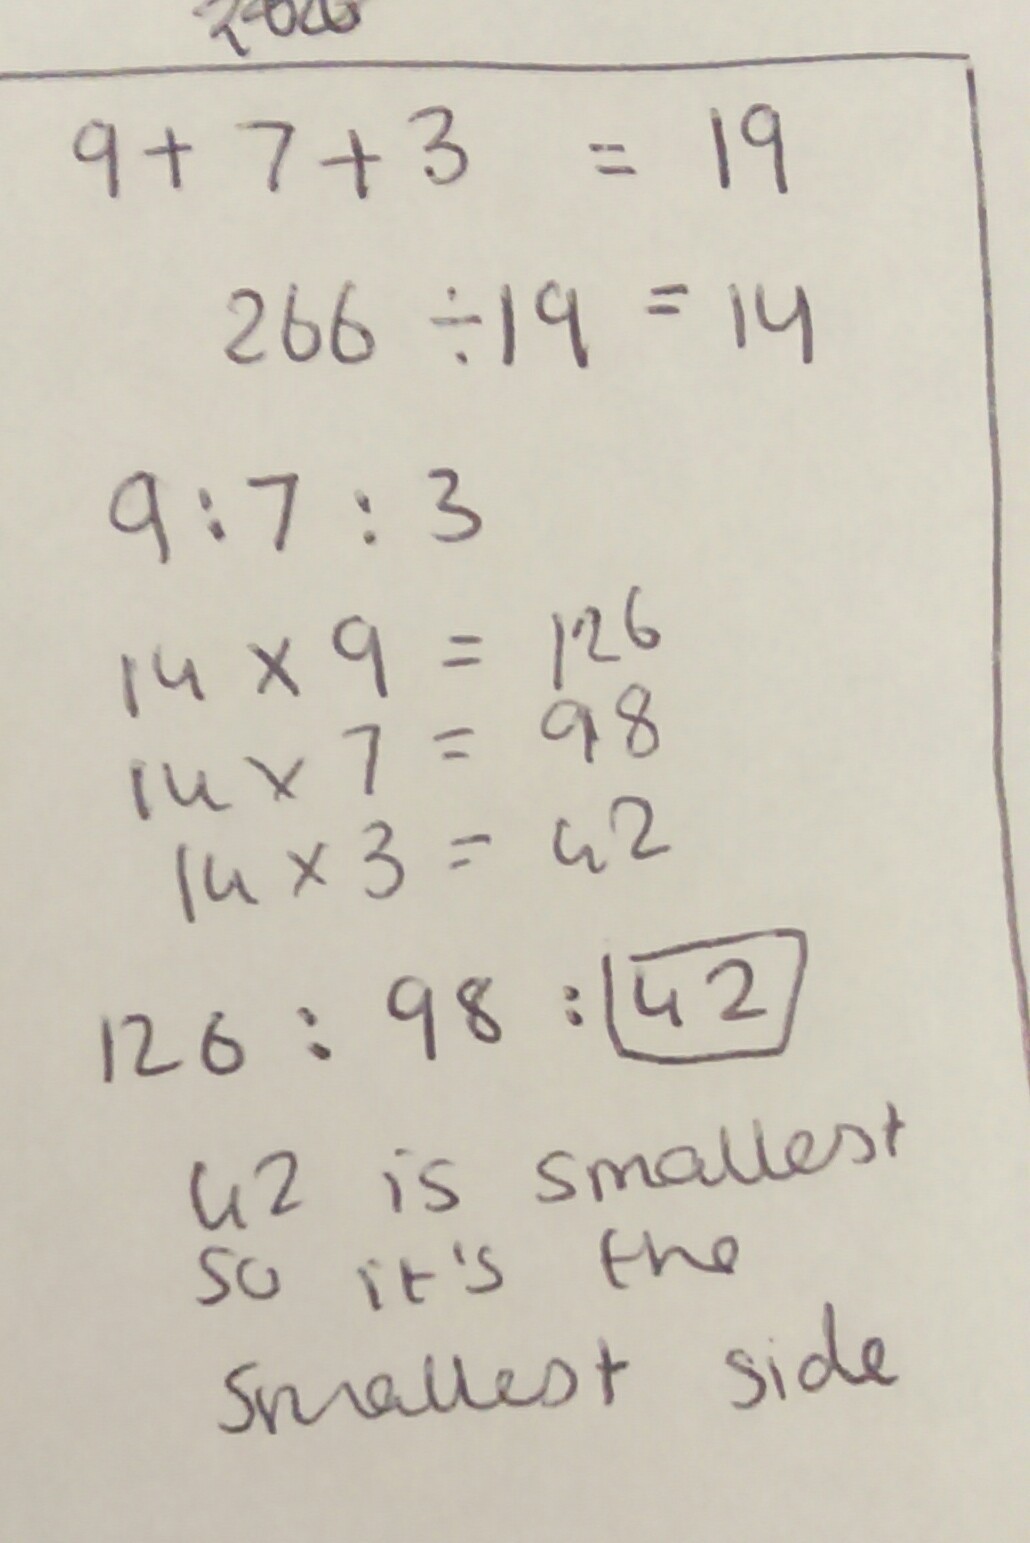 9 + 7 + 3 = 19
266 ÷ 19 = 14
9 : 7 : 3
14 × 9 = 126
14 × 7 = 98
14 × 3 = 42
126 : 98 : 42
42 is smallest
so it's the
smallest side